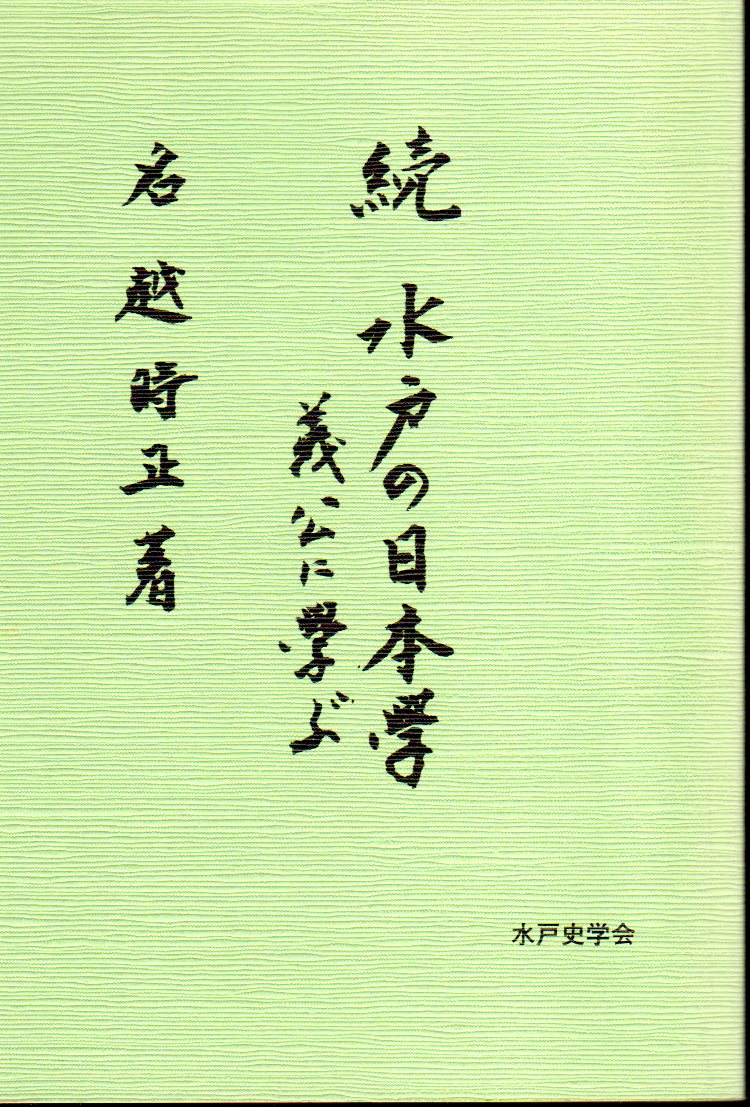 続 水戸の日本學
義公に學ぶ
名越時正著
水戸史学会